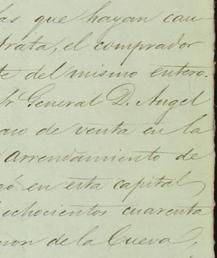 las que hayan cau
trata, el comprador
te del mismo entero.
Sr. General D. Angel
de venta en la
Arrendamiento de
en esta capital
ochocientos cuarenta
mon de la Cueva,